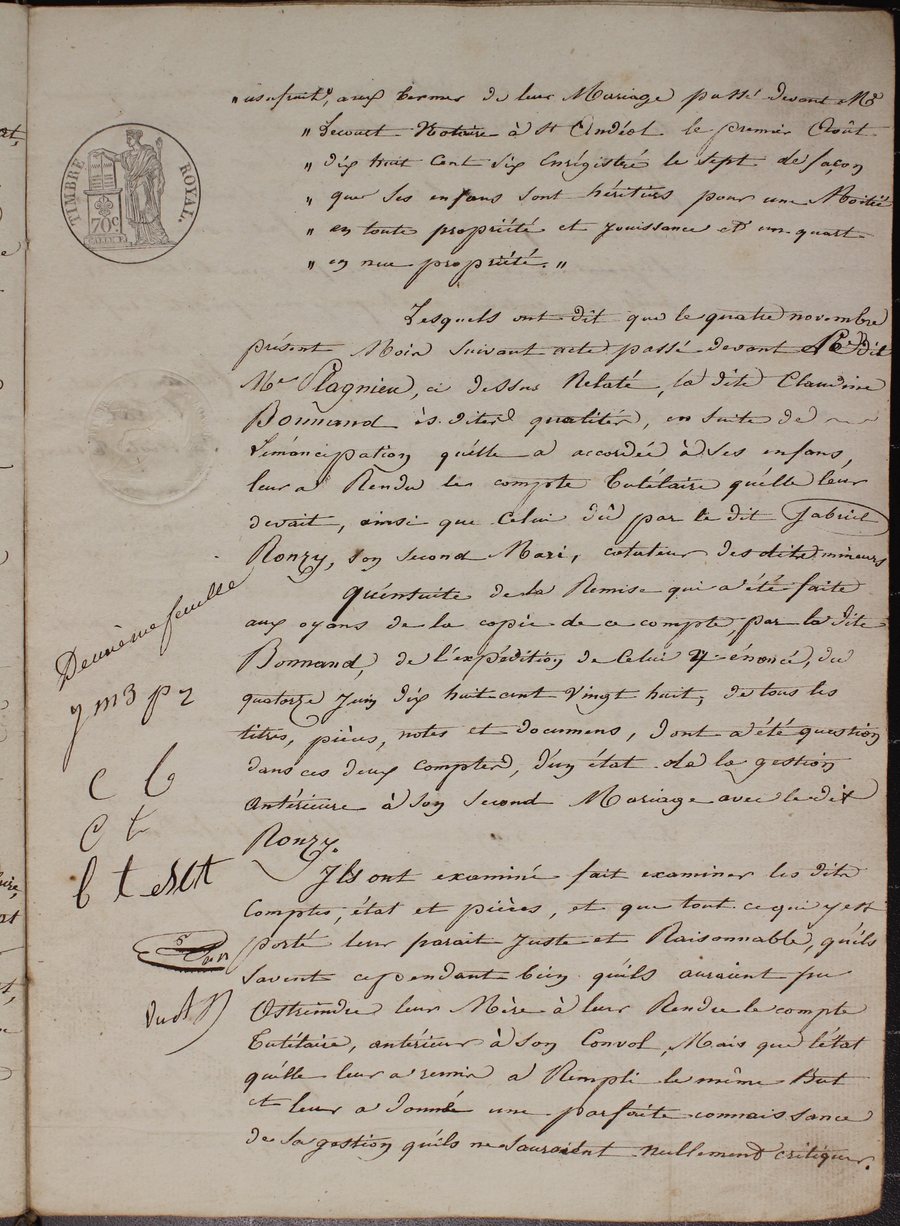 TIMBRE ROYAL.
70c.
„ usufruit, aux termes de leur Mariage passé devant Me
„ Notaire à St Andéol le premier Août
„ dix huit cent six Enrégistré le sept de façon
„ que ses enfans sont héritiers pour une Moitié
„ en toute propriété et jouissance et un quart
„ en nue propriété. „
Lesquels ont dit que le quatre novembre
présent Mois suivant acte passé devant le dit
Me Plagnieu, ci dessus Relaté, la dite Claudine
Bonnand ès dites qualités, en suite de
L'émancipation qu'elle a accordée à ses enfans,
leur a Rendu le compte Tutélaire qu'elle leur
devait, ainsi que Celui dû par le dit Gabriel
Ronzy, son second Mari, cotuteur des dits mineurs
Qu'ensuite de la Remise qui a été faite
aux oyans de la copie de ce compte, par la dite
Bonnand, de l'expédition de Celui y énoncé, du
quatorze Juin dix huit cent vingt huit, de tous les
titres, pièces, notes et documens, dont a été question
dans ces deux comptes, d'un état de la gestion
Antérieure à son second Mariage avec le dit
Ronzy.
Ils ont examiné fait examiner les dits
Comptes, état et pièces, et que tout ce qui y est
porté leur parait Juste et Raisonnable, qu'ils
savent cependant bien qu'ils auraient pu
Astreindre leur Mère à leur Rendre le compte
Tutélaire, antérieur à son Convol, Mais que l'état
qu'elle leur a remis a Rempli le même But
et leur a donné une parfaite connaissance
de sa gestion qu'ils ne sauraient nullement critiquer.
Deuxième feuille
C b
C t